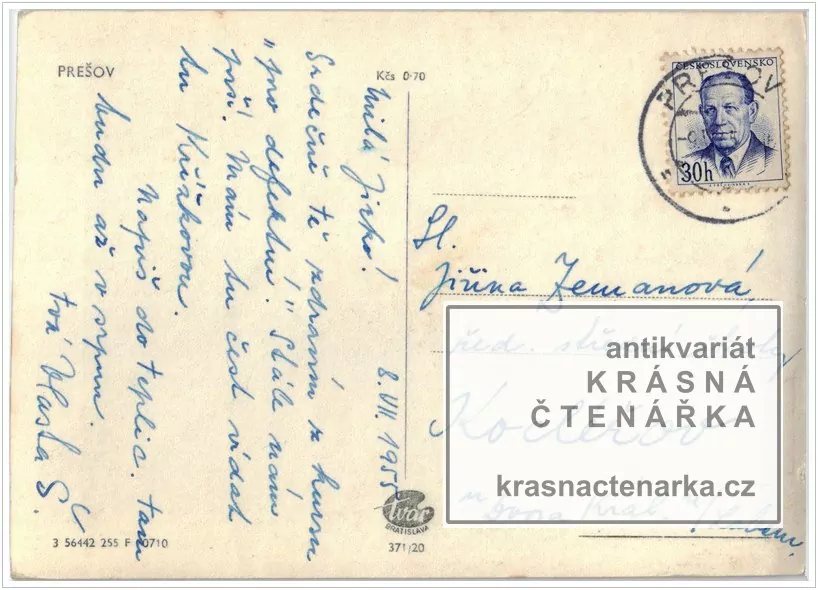 PREŠOV
Kčs 0·70
milá Jirko!
8. VII. 1955
Srdečně tě zdravím z kursu
"pro defektní." Stále nám
prší. Mám tu čest vídat
tu Křížkovou.
Napiš do Teplic. tam
budu až v srpnu.
tvá Vlasta S.
3 56442 255 F 10710
Tvar
BRATISLAVA
371/20
ČESKOSLOVENSKO
30h
PREŠOV
Sl.
Jiřina Zemanová
řed. střední školy
antikvariát
KRÁSNÁ
ČTENÁŘKA
krasnactenarka.cz
Dvora Král. n/Labem.